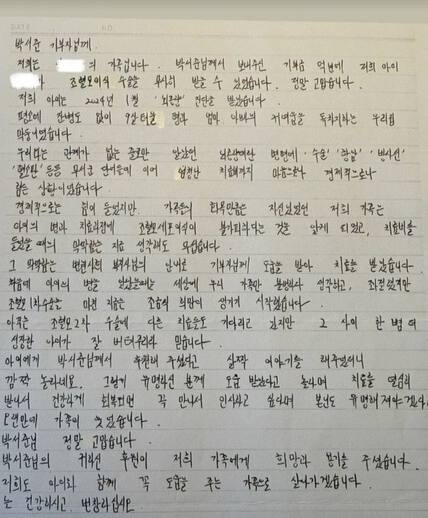 박서준 기부자님께.
저희는 의 가족입니다. 박서준님께서 보내주신 기부금 덕분에 저희 아이
조혈모이식 수술을 무사히 받을 수 있었습니다. 정말 고맙습니다.
저희 아이는 2024년 1월 '뇌종양' 진단을 받았습니다.
평소에 한번도 없이 형과 엄마 아빠의 사랑을 독차지하는 우리집
막둥이였습니다.
우리와는 관계가 없는 줄로만 알았던 뇌종양이란 병명에 '수술' '항암' '방사선'
등등 무서운 단어들이 이어 치료까지 마음으로나 경제적으로나
힘든 상황이었습니다.
경제적으로는 힘이 들었지만 가족들의 화목만큼은 자신있었던 저희 가족는
아이의 병과 치료과정에 조혈모세포이식이 불가피하다는 것을 알게 되었고, 치료비를
들었을 때의 막막함은 지금 생각해도 무섭습니다.
그 막막함는 병원사회 복지사님의 안내로 기부자님께 도움을 받아 치료를 받았습니다.
처음에 아이의 병을 알았을때는 세상에 우리 가족만 불행하다 생각하고, 좌절했지만
조혈모 1차수술을 마친 지금은 조금씩 희망이 생기기 시작했습니다.
아직은 조혈모 2차 수술에 다른 치료들도 기다리고 있지만 그 사이 한 뼘 더
성장한 아이가 잘 버텨주리라 믿습니다.
아이에게 박서준님께서 후원해 주셨다고 살짝 이야기를 해주었더니
깜짝 놀라네요. 그렇게 유명하신 분께 도움 받았다고 놀라며 치료를 열심히
받아서 건강하게 회복되면 꼭 만나서 인사하고 싶다며 본인도 유명해져야겠다
오랜만에 가족이 웃었습니다.
박서준님 정말 고맙습니다.
박서준님의 귀하신 후원이 저희 가족에게 희망과 용기를 주셨습니다.
저희도 아이와 함께 꼭 도움을 주는 가족으로 살아가겠습니다.
늘 건강하시고 번창하십시오.